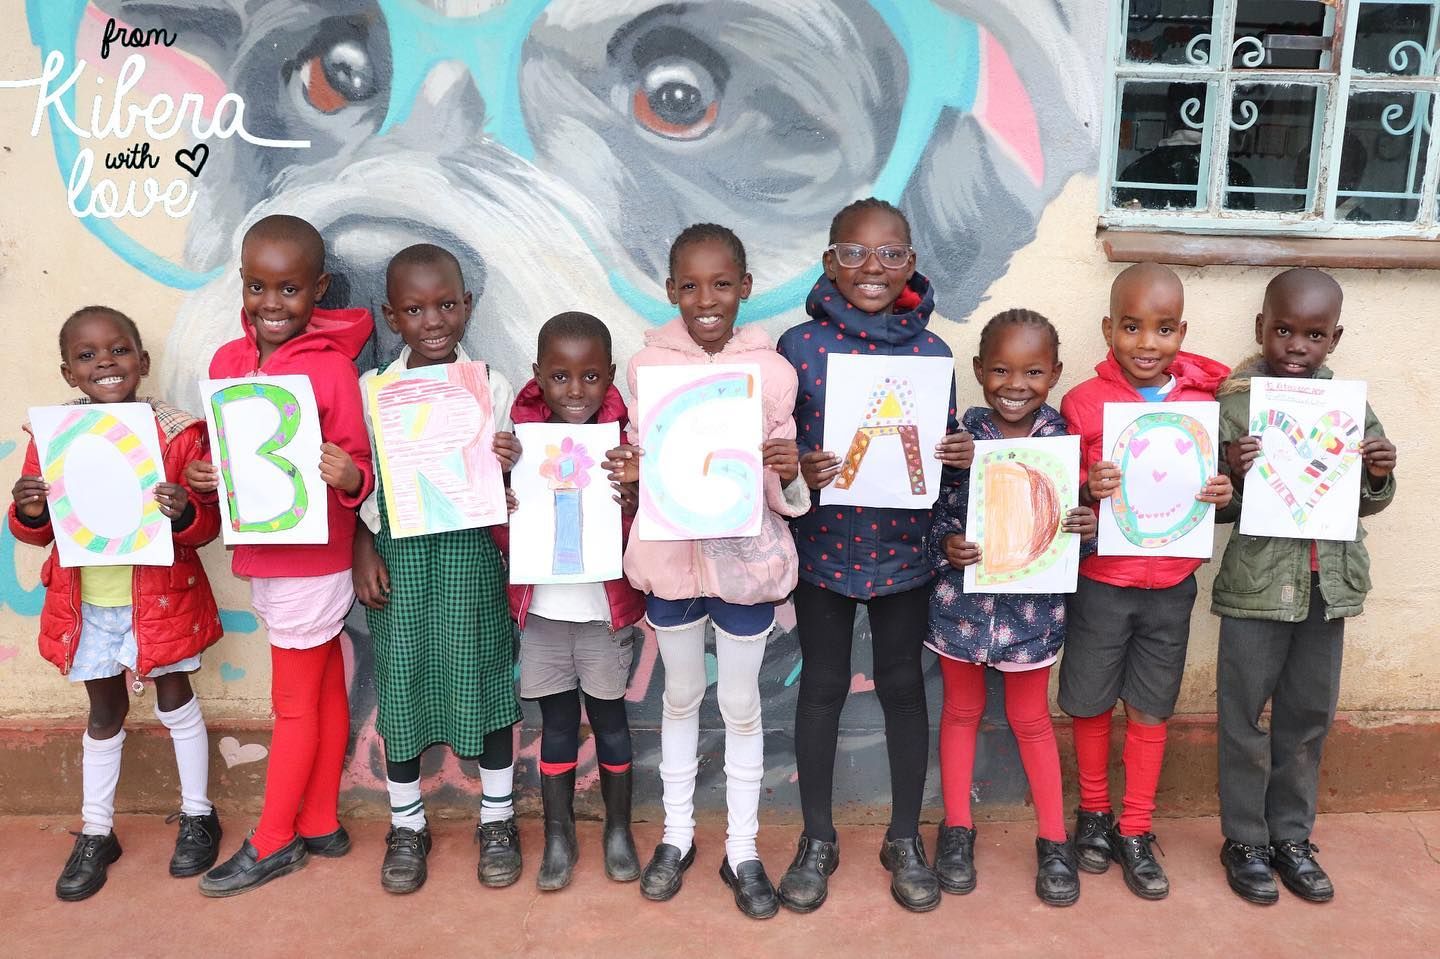 from
Kibera
with
love
OBRIGADO